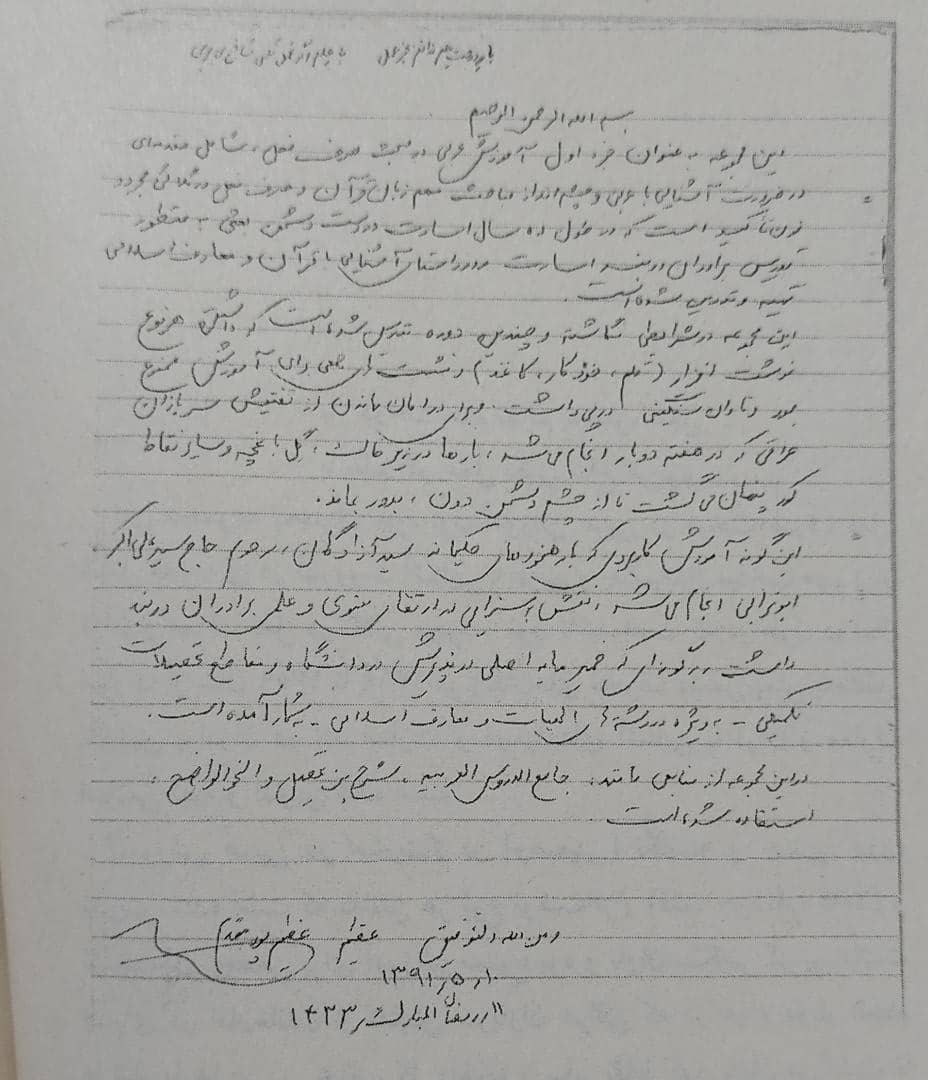 بسم الله الرحمن الرحیم
این مجموعه به عنوان جزء اول آموزش عربی در مبحث صرف فعل، شامل مقدمه‌ای
در ضرورت آشنایی با عربی و چشم انداز مباحث مهم زبان قرآن و صرف فعل در ثلاثی مجرد
است که در طول ده سال اسارت در دست دشمن بعثی به منظور
تدریس برادران دربند اسارت و آشنایی با قرآن و معارف اسلامی
تهیه و تدوین شده است.
این مجموعه در شرایطی نگاشته و چندین دوره تدریس شده است که داشتن هر نوع
نوشت افزار (قلم، خودکار، کاغذ) و نشست های جمعی برای آموزش ممنوع
بود و تاوان سنگینی در پی داشت. و برای در امان ماندن از تفتیش سربازان
عراقی که در هفته دوبار انجام می شد، بارها در زیر خاک، گل باغچه و سایر نقاط
کور پنهان می گشت تا از چشم دشمن دون، بدور بماند.
این گونه آموزش کاربردی که با رهنمودهای حکیمانه سید آزادگان، مرحوم حاج سید علی اکبر
ابوترابی انجام می شد، نقش بسزایی در ارتقای معنوی و علمی برادران دربند
داشت به گونه ای که خمیر مایه اصلی در پذیرش در دانشگاه و مقاطع تحصیلات
تکمیلی - به ویژه در رشته های الهیات و معارف اسلامی - بشمار آمده است.
در این مجموعه از منابعی مانند: جامع الدروس العربیه، شرح بن عقیل و النحو الواضح،
استفاده شده است.
و من الله التوفیق عظیم عظیم پور مقدم
۱۰ر۵ر۱۳۹۱
۱۱ر رمضان المبارک ر۱۴۳۳